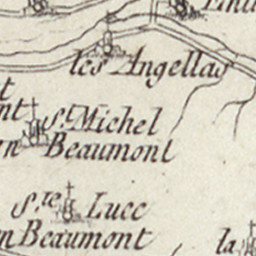 les Angellas
S.t Michel
Beaumont
S.te Luce
Beaumont
la